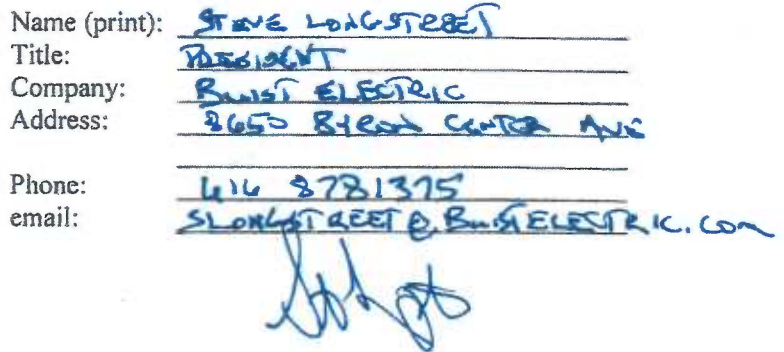 Name (print): STEVE LONGSTREET
Title: PRESIDENT
Company: BUIST ELECTRIC
Address: 8650 BYRON CENTER AVE
Phone: 616 8781375
email: SLONGSTREET@BUISTELECTRIC.COM